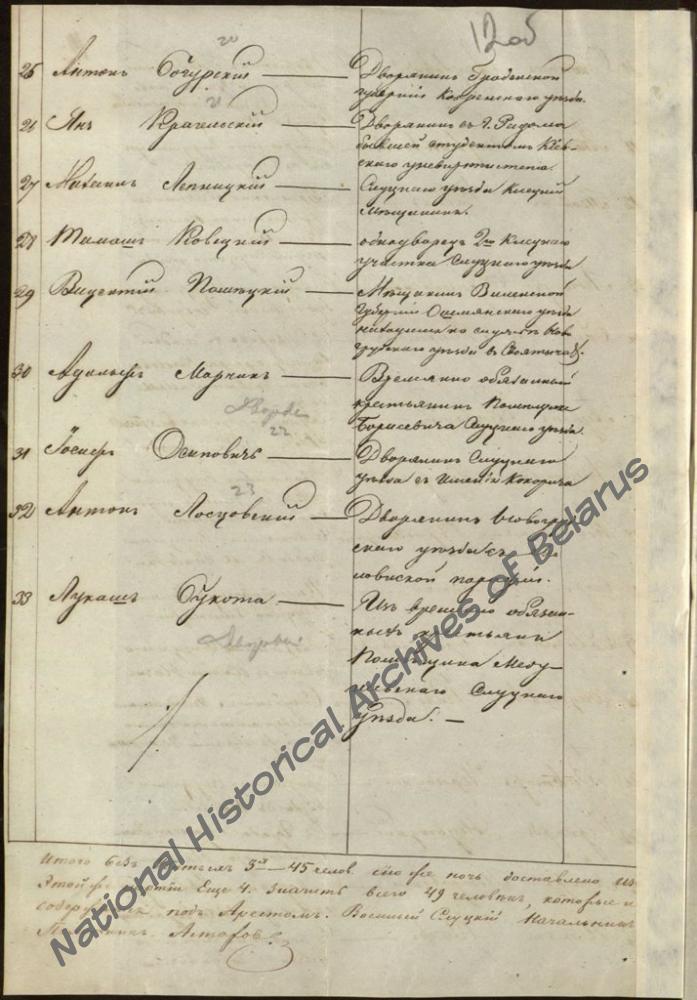 12 об
20
25 Антонъ Богурскій — Дворянинъ Гродненской
губерніи Кобринскаго уѣзда.
21
26 Янъ Крагельскій — Дворянинъ съ г. Радома
бывшій студентомъ Кіев-
скаго университета.
27 Михаилъ Лепницкій — Слуцкаго уѣзда Клецкій
Мѣщанинъ.
28 Тамашъ Ковецкій — однодворецъ 2го Клецкаго
участка Слуцкаго уѣзда
29 Викентій — Мѣщанинъ Виленской
губерніи Ошмянскаго уѣзда
находился на службѣ Ново-
грудскаго уѣзда в
30 Адольфъ Марчикъ — Временно обязанный
крестьянинъ Помещика
Борисевича Слуцкаго уѣзда.
22
31 Іосифъ Осиповичъ — Дворянинъ Слуцкаго
уѣзда съ Имѣнія Кокорича
23
32 Антонъ Лосцовскій — Дворянинъ Новогруд-
скаго уѣзда съ
парафіи.
33 Лукашъ Букота — Изъ временно обязан-
ныхъ крестьянъ
Помѣщика
Слуцкаго
уѣзда. —
Итого безъ 3х — 45 челов. сію же ночь доставлено из
этой же партіи еще 4. значитъ всего 49 человекъ, которые и
подъ Арестомъ. Военный Слуцкій Начальникъ
National Historical Archives of Belarus